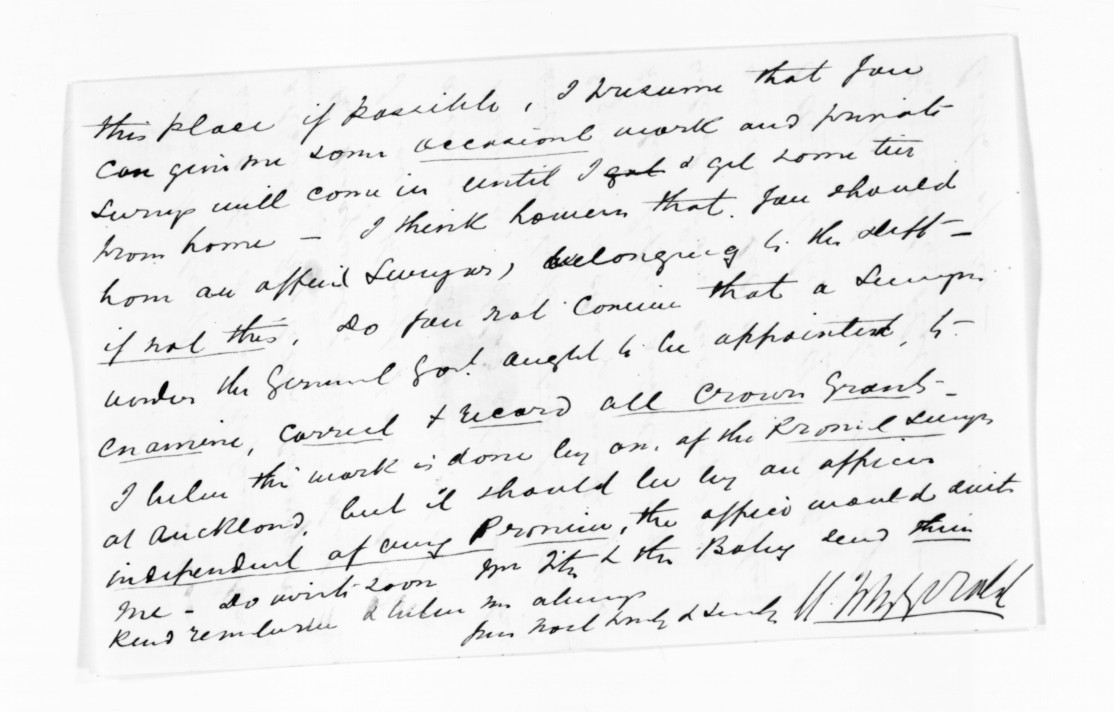 this place if possible, I presume that you
can give me some occasional work and private
Surveys will come in until I got & get some tin
from home — I think however that you should
have an official Surveyor, belonging to the dept —
if not this, Do you not conceive that a Surveyor
under the General Gov.t ought to be appointed, to
examine, correct & record all Crown Grants —
I believe the work is done by one of the Provin.l Surveyors
at Auckland, but it should be by an officer
independent of any Province, the office would suit
me — Do write soon Mrs Fitz & the Baby send their
kind remembrances & believe me always
Yours most truly & sincerely W. Fitzgerald